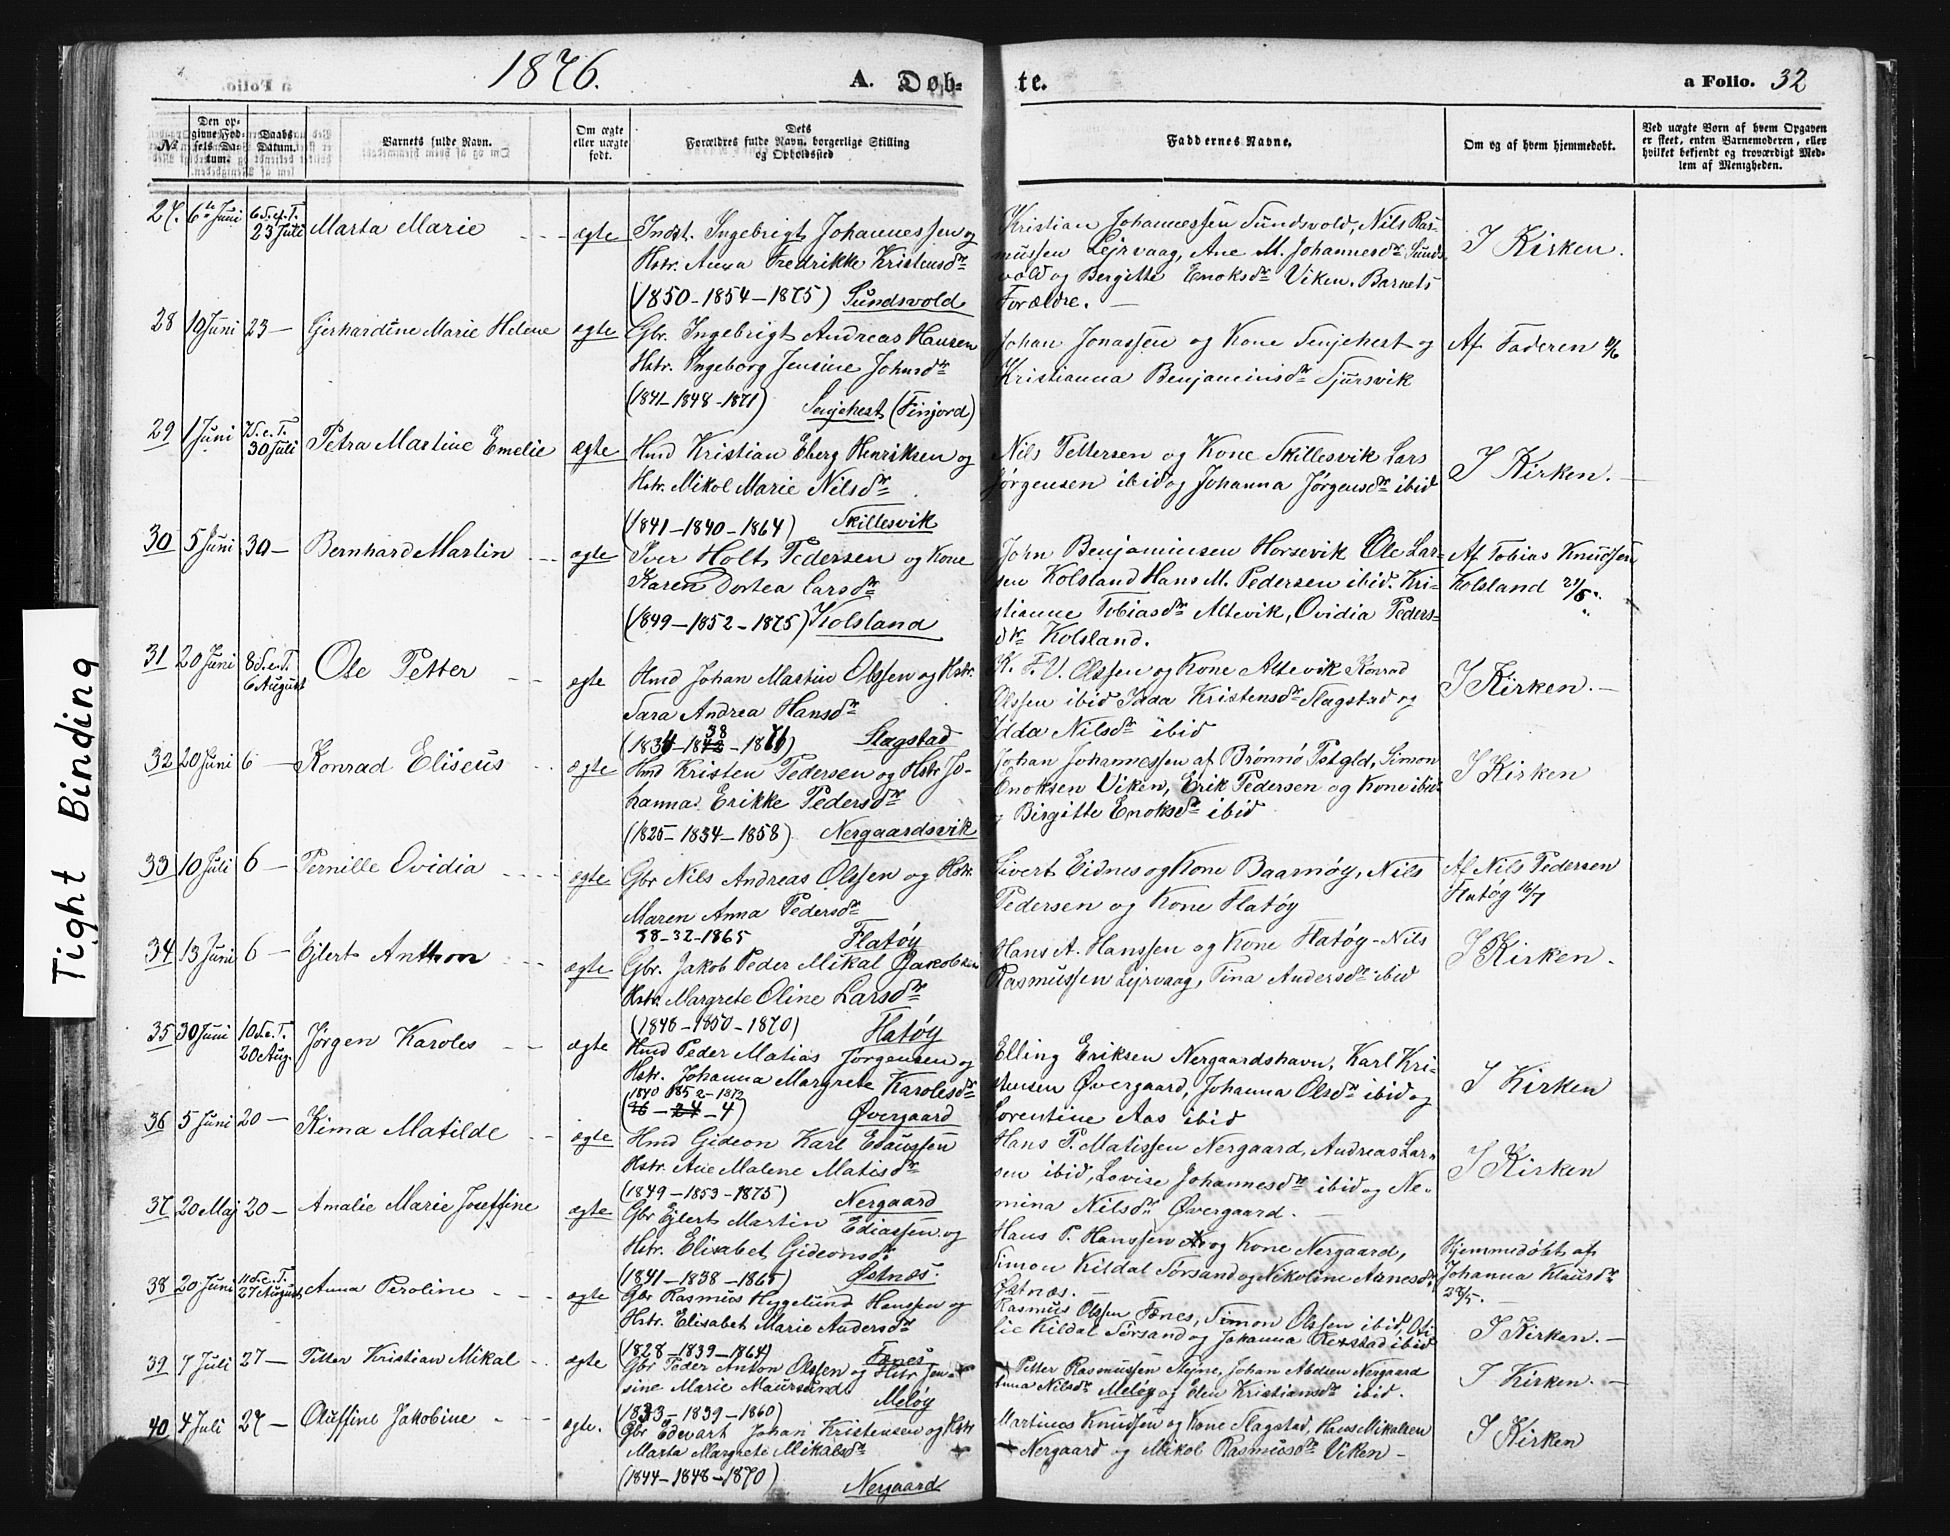 1876.
A. Døb-
te.
a Folio. 32
Tight Binding
№
Den op-
givne Fød-
sels Da-
tum.
Daabs
Datum.
Barnets fulde Navn.
Om ægte
eller uægte
født.
Dets
Forældres fulde Navn, borgerlige Stilling
og Opholdssted
Faddernes Navne.
Om og af hvem hjemmedøbt.
Ved uægte Born af hvem Opgaven
er skeet, enten Barnemoderen, eller
hvilket bekjendt og troværdigt Med-
lem af Menigheden.
27. 6te Juni 6 S.e.T. 23 Juli Marta Marie ægte
Indst. Ingebrigt Johannessen og
Hstr. Anna Fredrikke Kristensdtr
(1850-1854-1875) Sundsvold
Kristian Johannessen Sundsvold, Nils Ras-
mussen Lejrvaag, Ane M. Johannesdtr Sunds-
vold og Bergitte Enoksdtr Viken. Barnets
Forældre.
I Kirken.
28 10 Juni 23 — Gerhardine Marie Helene ægte
Gbr. Ingebrigt Andreas Hansen
Hstr. Ingeborg Jensine Johnsdtr
(1841-1848-1871) Senjehest (Finjord)
Johan Jonassen og Kone Senjehest og
Kristianna Benjaminsdtr Sjursvik
Af Faderen
29 1 Juni 7 S.e.T. 30 Juli Petra Martine Emelie ægte
Hmd Kristian Eberg Henriksen og
Hstr. Mikol Marie Nilsdtr
(1841-1840-1864) Skillesvik
Nils Pettersen og Kone Skillesvik Lars
Jørgensen ibid og Johanna Jørgensdtr ibid
I Kirken.
30 5 Juni 30 — Bernhard Martin ægte
Iver Holt Pedersen og Kone
Karen Dortea Larsdtr
(1849-1852-1875) Kolsland
John Benjaminsen Horsevik Ole Lar-
sen Kolsland Hans M. Pedersen ibid. Kri-
stianne Tobiasdtr Altevik, Ovidia Peders-
dtr Kolsland.
Af Tobias Knudsen
Kolsland
31 20 Juni 8 S.e.T. 6 August Ole Petter ægte
Hmd Johan Martin Olssen og Hstr.
Sara Andrea Hansdtr
Slagstad
K. F. U. Olssen og Kone Altevik Konrad
Olssen ibid Idda Kristensdtr Slagstad og
Idda Nilsdtr ibid
I Kirken.
32 20 Juni 6 — Konrad Eliseus ægte
Hmd Kristen Pedersen og Hstr Jo-
hanna Erikke Pedersdtr
(1825-1834-1858) Nergaardsvik
Johan Johannessen af Brønnø Pstgld, Simon
Enoksen Viken, Erik Pedersen og Kone ibid
Birgitte Enoksdtr ibid
I Kirken
33 10 Juli 6 — Pernille Ovidia ægte
Gbr Nils Andreas Olssen og Hstr.
Maren Anna Pedersdtr
38-32-1865 Flatøy
Sivert Eidnes og Kone Baarnøy, Nils
Pedersen og Kone Flatøy
Af Nils Pedersen
Flatøy 16/7
34 13 Juni 6 — Ejlert Anthon ægte
Gbr. Jakob Peder Mikal Jakobsen
Hstr. Margrete Oline Larsdtr
(1846-1850-1870) Flatøy
Hans A. Hanssen og Kone Flatøy - Nils
Rasmussen Lejrvaag, Tina Andersdtr ibid
I Kirken.
35 30 Juni 10 S.e.T. 20 Aug. Jørgen Karoles ægte
Hmd Peder Matias Jørgensen og
Hstr. Johanna Margrete Karolesdtr
Øvergaard
Elling Eriksen Nergaardshavn, Karl Kri-
stensen Øvergaard, Johanna Olsdtr ibid og
Lorentine Aas ibid
I Kirken
36 5 Juni 20 — Kima Matilde ægte
Hmd Gideon Karl Esaussen
Hstr. Ane Malene Matisdtr
(1849-1853-1875) Nergaard
Hans P. Matissen Nergaard, Andreas Lar-
sen ibid, Lovise Johannesdtr ibid og Ne-
mina Nilsdtr Øvergaard.
I Kirken
37 20 Maj 20 — Amalie Marie Joseffine ægte
Gbr Ejlert Martin Ediassen og
Hstr. Elisabet Gideonsdtr
(1841-1838-1865) Østnæs.
Hans P. Hanssen og Kone Nergaard,
Simon Kildal Sørsand og Nikoline Arnesdtr
Østnæs.
Hjemmedøbt af
Johanna Klausdtr
28/5.
38 20 Juni 11 S.e.T. 27 August Anna Peroline ægte
Gbr Rasmus Hygelund Hanssen og
Hstr. Elisabet Marie Andersdtr
(1828-1839-1864) Fænes
Rasmus Olssen Fænes, Simon Olssen ibid, Oti-
lie Kildal Sørsand og Johanna Rexstad ibid
I Kirken.
39 7 Juli 27 — Petter Kristian Mikal ægte
Gbr Peder Anton Olssen og Hstr Jen-
sine Marie Maursund
(1833-1839-1860) Meløy
Petter Rasmussen Stejne, Johan Abelsen Nergaard
Anna Nilsdtr Meløy og Elen Kristiansdtr ibid.
I Kirken.
40 4 Juli 27 — Oluffine Jakobine ægte.
Gbr Edevart Johan Kristensen og Hstr
Marta Margrete Mikalsdtr
(1844-1848-1870) Nergaard
Martinus Knudsen og Kone Slagstad, Hans Mikalsen
Nergaard og Mikol Rasmusdtr Viken
I Kirken